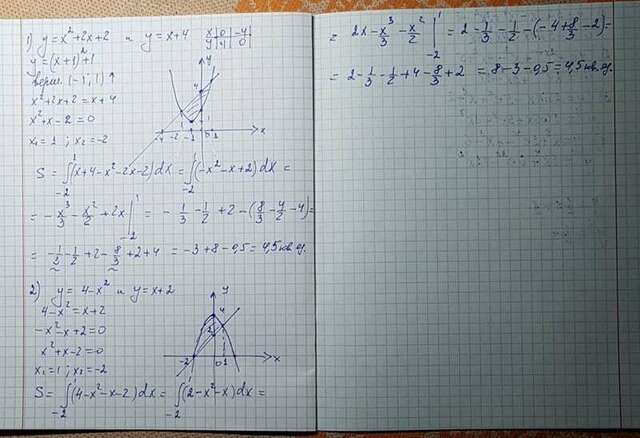 1) y = x² + 2x + 2 и y = x + 4
x | 0 | -4
y | 4 | 0
y = (x+1)² + 1
верш. (-1; 1) ↑
x² + 2x + 2 = x + 4
x² + x - 2 = 0
x₁ = 1 ; x₂ = -2
y
4
1
-4 -2 -1 0 1 x
S = ∫₋₂¹ (x+4-x²-2x-2) dx = ∫₋₂¹ (-x²-x+2) dx =
= -x³/3 - x²/2 + 2x |₋₂¹ = -1/3 - 1/2 + 2 - (8/3 - 4/2 - 4) =
= -1/3 - 1/2 + 2 - 8/3 + 2 + 4 = -3 + 8 - 0,5 = 4,5 кв.ед.
2) y = 4 - x² и y = x + 2
4 - x² = x + 2
-x² - x + 2 = 0
x² + x - 2 = 0
x₁ = 1 ; x₂ = -2
y
4
2
-2 0 1 x
S = ∫₋₂¹ (4-x²-x-2) dx = ∫₋₂¹ (2-x²-x) dx =
= 2x - x³/3 - x²/2 |₋₂¹ = 2 - 1/3 - 1/2 - (-4 + 8/3 - 2) =
= 2 - 1/3 - 1/2 + 4 - 8/3 + 2 = 8 - 3 - 0,5 = 4,5 кв.ед.